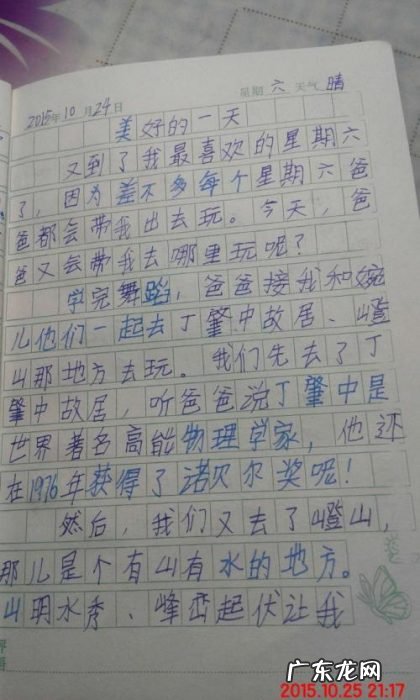 2015年10月24日 星期六 天气晴
美好的一天
又到了我最喜欢的星期六
了，因为差不多每个星期六爸
爸都会带我出去玩。今天，爸
爸又会带我去哪里玩呢？
学完舞蹈，爸爸接我和婉
儿他们一起去丁肇中故居、嶝
山那地方去玩。我们先去了丁
肇中故居，听爸爸说丁肇中是
世界著名高能物理学家，他还
在1976年获得了诺贝尔奖呢！
然后，我们又去了嶝山，
那儿是个有山有水的地方。
山明水秀、峰峦起伏让我
广东龙网
2015.10.25 21:17